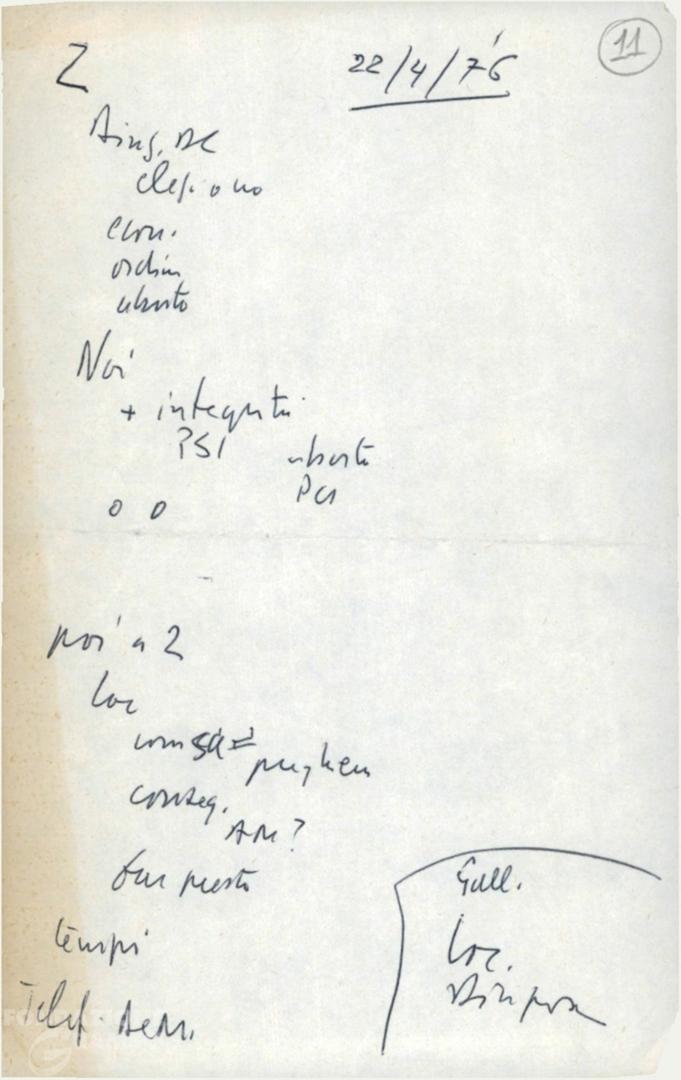 Z 22/4/76 11
Ding. DC
elez. o no
econ.
ordin
aborto
Noi
+ integrti
PSI aborto
PCI
o o
poi a 2
Loc
pregherei
conseg.
AM?
far presto
tempi
Telef. Dem.
Gall.
Loc.